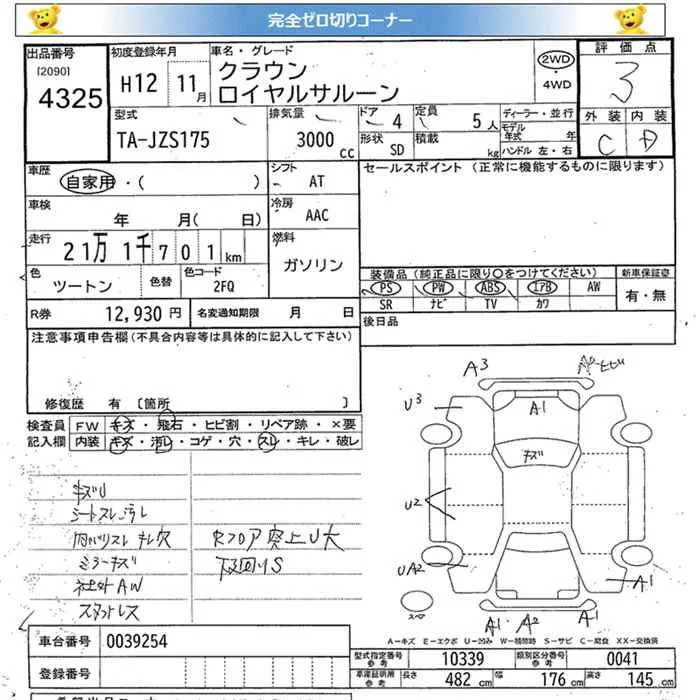 完全ゼロ切りコーナー
出品番号 初度登録年月 車名・グレード 評価点
[2090]
4325 H12 11月 クラウン
ロイヤルサルーン
2WD
・
4WD
3
型式 排気量 ドア 4 定員 5人 ディーラー・並行 外装 内装
TA-JZS175 3000cc 形状 SD 積載 kg モデル年式 年 C D
ハンドル 左・右
車歴 シフト セールスポイント (正常に機能するものに限ります)
自家用・( ) AT
車検 冷房
年 月( 日) AAC
走行 燃料
21万1千701km ガソリン
装備品 (純正品に限り○をつけてください) 新車保証書
色 ツートン 色替 色コード 2FQ PS PW ABS エアB AW 有・無
SR ナビ TV カワ
R券 12,930円 名変通知期限 月 日 後日品
注意事項申告欄(不具合内容等は具体的に記入して下さい)
修復歴 有 [箇所 ]
検査員 FW キズ・飛石・ヒビ割・リペア跡・×要
記入欄 内装 キズ・汚レ・コゲ・穴・スレ・キレ・破レ
A3
U3 A1
キズ
U2
UA2 A1
スペア
A1・A2 A1
キズU
シートスレ汚レ
ミラーキズ
社外AW
スタットレス
Rフロア突上U大
下回りS
A-キズ E-エクボ U-凹み W-補修跡 S-サビ C-腐食 XX-交換済
車台番号 0039254 型式指定番号 参考 10339 類別区分番号 参考 0041
登録番号 車庫証明用 参考 長さ 482cm 幅 176cm 高さ 145cm